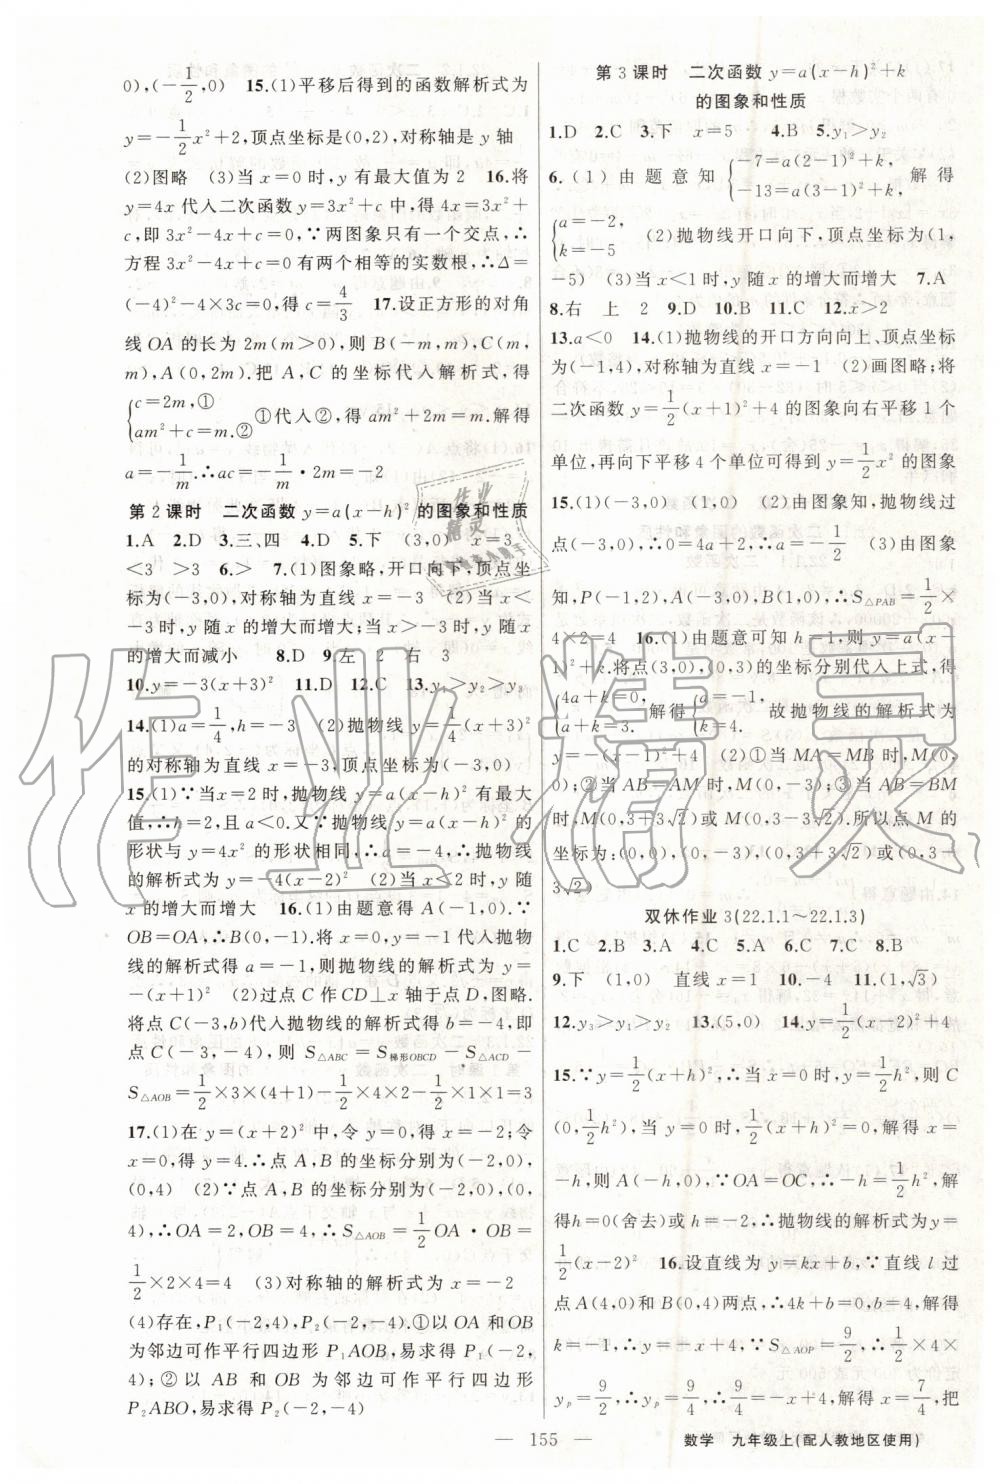 0),(-1/2,0)　15.(1)平移后得到的函数解析式为
y=-1/2x²+2,顶点坐标是(0,2),对称轴是 y 轴
(2)图略　(3)当 x=0 时,y 有最大值为 2　16.将
y=4x 代入二次函数 y=3x²+c 中,得 4x=3x²+
c,即 3x²-4x+c=0,∵两图象只有一个交点,∴
方程 3x²-4x+c=0 有两个相等的实数根,∴Δ=
(-4)²-4×3c=0,得 c=4/3　17.设正方形的对角
线 OA 的长为 2m(m>0),则 B(-m,m),C(m,
m),A(0,2m).把 A,C 的坐标代入解析式,得
{c=2m,①
am²+c=m.② ①代入②,得 am²+2m=m.解得
a=-1/m.∴ac=-1/m·2m=-2
第 2 课时　二次函数 y=a(x-h)² 的图象和性质
1.A　2.D　3.三、四　4.D　5.下　(3,0)　x=3
<3　>3　6.>　7.(1)图象略,开口向下,顶点坐
标为(-3,0),对称轴为直线 x=-3　(2)当 x<
-3 时,y 随 x 的增大而增大;当 x>-3 时,y 随 x
的增大而减小　8.D　9.左　2　右　3
10.y=-3(x+3)²　11.D　12.C　13.y₁>y₂>y₃
14.(1)a=1/4,h=-3　(2)抛物线 y=1/4(x+3)²
的对称轴为直线 x=-3,顶点坐标为(-3,0)
15.(1)∵当 x=2 时,抛物线 y=a(x-h)² 有最大
值,∴h=2,且 a<0.又∵抛物线 y=a(x-h)² 的
形状与 y=4x² 的形状相同,∴a=-4,∴抛物线
的解析式为 y=-4(x-2)²　(2)当 x<2 时,y 随
x 的增大而增大　16.(1)由题意得 A(-1,0).∵
OB=OA,∴B(0,-1).将 x=0,y=-1 代入抛物
线的解析式得 a=-1,则抛物线的解析式为 y=
-(x+1)²　(2)过点 C 作 CD⊥x 轴于点 D,图略.
将点 C(-3,b)代入抛物线的解析式得 b=-4,即
点 C(-3,-4),则 S△ABC=S梯形OBCD-S△ACD-
S△AOB=1/2×3×(4+1)-1/2×4×2-1/2×1×1=3
17.(1)在 y=(x+2)² 中,令 y=0,得 x=-2;令
x=0,得 y=4.∴点 A,B 的坐标分别为(-2,0),
(0,4)　(2)∵点 A,B 的坐标分别为(-2,0),(0,
4),∴OA=2,OB=4,∴S△AOB=1/2OA·OB=
1/2×2×4=4　(3)对称轴的解析式为 x=-2
(4)存在,P₁(-2,4),P₂(-2,-4).①以 OA 和 OB
为邻边可作平行四边形 P₁AOB,易求得 P₁(-2,
4);②以 AB 和 OB 为邻边可作平行四边形
P₂ABO,易求得 P₂(-2,-4)
第 3 课时　二次函数 y=a(x-h)²+k
的图象和性质
1.D　2.C　3.下　x=5　4.B　5.y₁>y₂
6.(1)由题意知{-7=a(2-1)²+k,
-13=a(3-1)²+k, 解得
{a=-2,
k=-5　(2)抛物线开口向下,顶点坐标为(1,
-5)　(3)当 x<1 时,y 随 x 的增大而增大　7.A
8.右　上　2　9.D　10.B　11.C　12.x>2
13.a<0　14.(1)抛物线的开口方向向上,顶点坐标
为(-1,4),对称轴为直线 x=-1　(2)画图略;将
二次函数 y=1/2(x+1)²+4 的图象向右平移 1 个
单位,再向下平移 4 个单位可得到 y=1/2x² 的图象
15.(1)(-3,0)　(1,0)　(2)由图象知,抛物线过
点(-3,0),∴0=4a+2,∴a=-1/2　(3)由图象
知,P(-1,2),A(-3,0),B(1,0),∴S△PAB=1/2×
4×2=4　16.(1)由题意可知 h=1,则 y=a(x-
1)²+k.将点(3,0),(0,3)的坐标分别代入上式,得
{4a+k=0,
a+k=3. 解得{a=-1,
k=4. 故抛物线的解析式为
y=-(x-1)²+4　(2)①当 MA=MB 时,M(0,
0);②当 AB=AM 时,M(0,-3);③当 AB=BM
时,M(0,3+3√2)或 M(0,3-3√2).所以点 M 的
坐标为:(0,0),(0,-3),(0,3+3√2)或(0,3-
3√2)
双休作业 3(22.1.1~22.1.3)
1.C　2.B　3.A　4.C　5.A　6.C　7.C　8.B
9.下　(1,0)　直线 x=1　10.-4　11.(1,√3)
12.y₃>y₁>y₂　13.(5,0)　14.y=1/2(x-2)²+4
15.∵y=1/2(x+h)²,∴当 x=0 时,y=1/2h²,则 C
(0,1/2h²),当 y=0 时,1/2(x+h)²=0,解得 x=
-h,则 A(-h,0),∵OA=OC,∴-h=1/2h²,解
得h=0(舍去)或 h=-2,∴抛物线的解析式为 y=
1/2(x-2)²　16.设直线为 y=kx+b,∵直线 l 过
点 A(4,0)和 B(0,4)两点,∴4k+b=0,b=4,解得
k=-1,∴y=-x+4,∵S△AOP=9/2,∴1/2×4×
yₚ=9/2,∴yₚ=9/4,∴9/4=-x+4,解得 x=7/4,把
— 155 —
数学　九年级上(配人教地区使用)
作业精灵